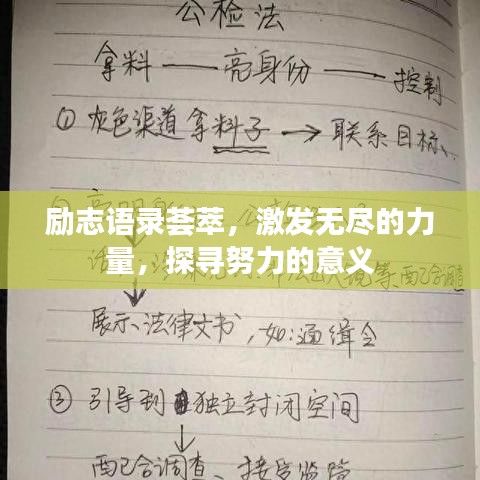 公检法
拿料——亮身份——→控制
①灰色渠道拿料子→联系目标、
励志语录荟萃，激发无尽的力
量，探寻努力的意义
展示、法律文书，如:通缉令
③引导到独立封闭空间
↓
配合调查、接受监管